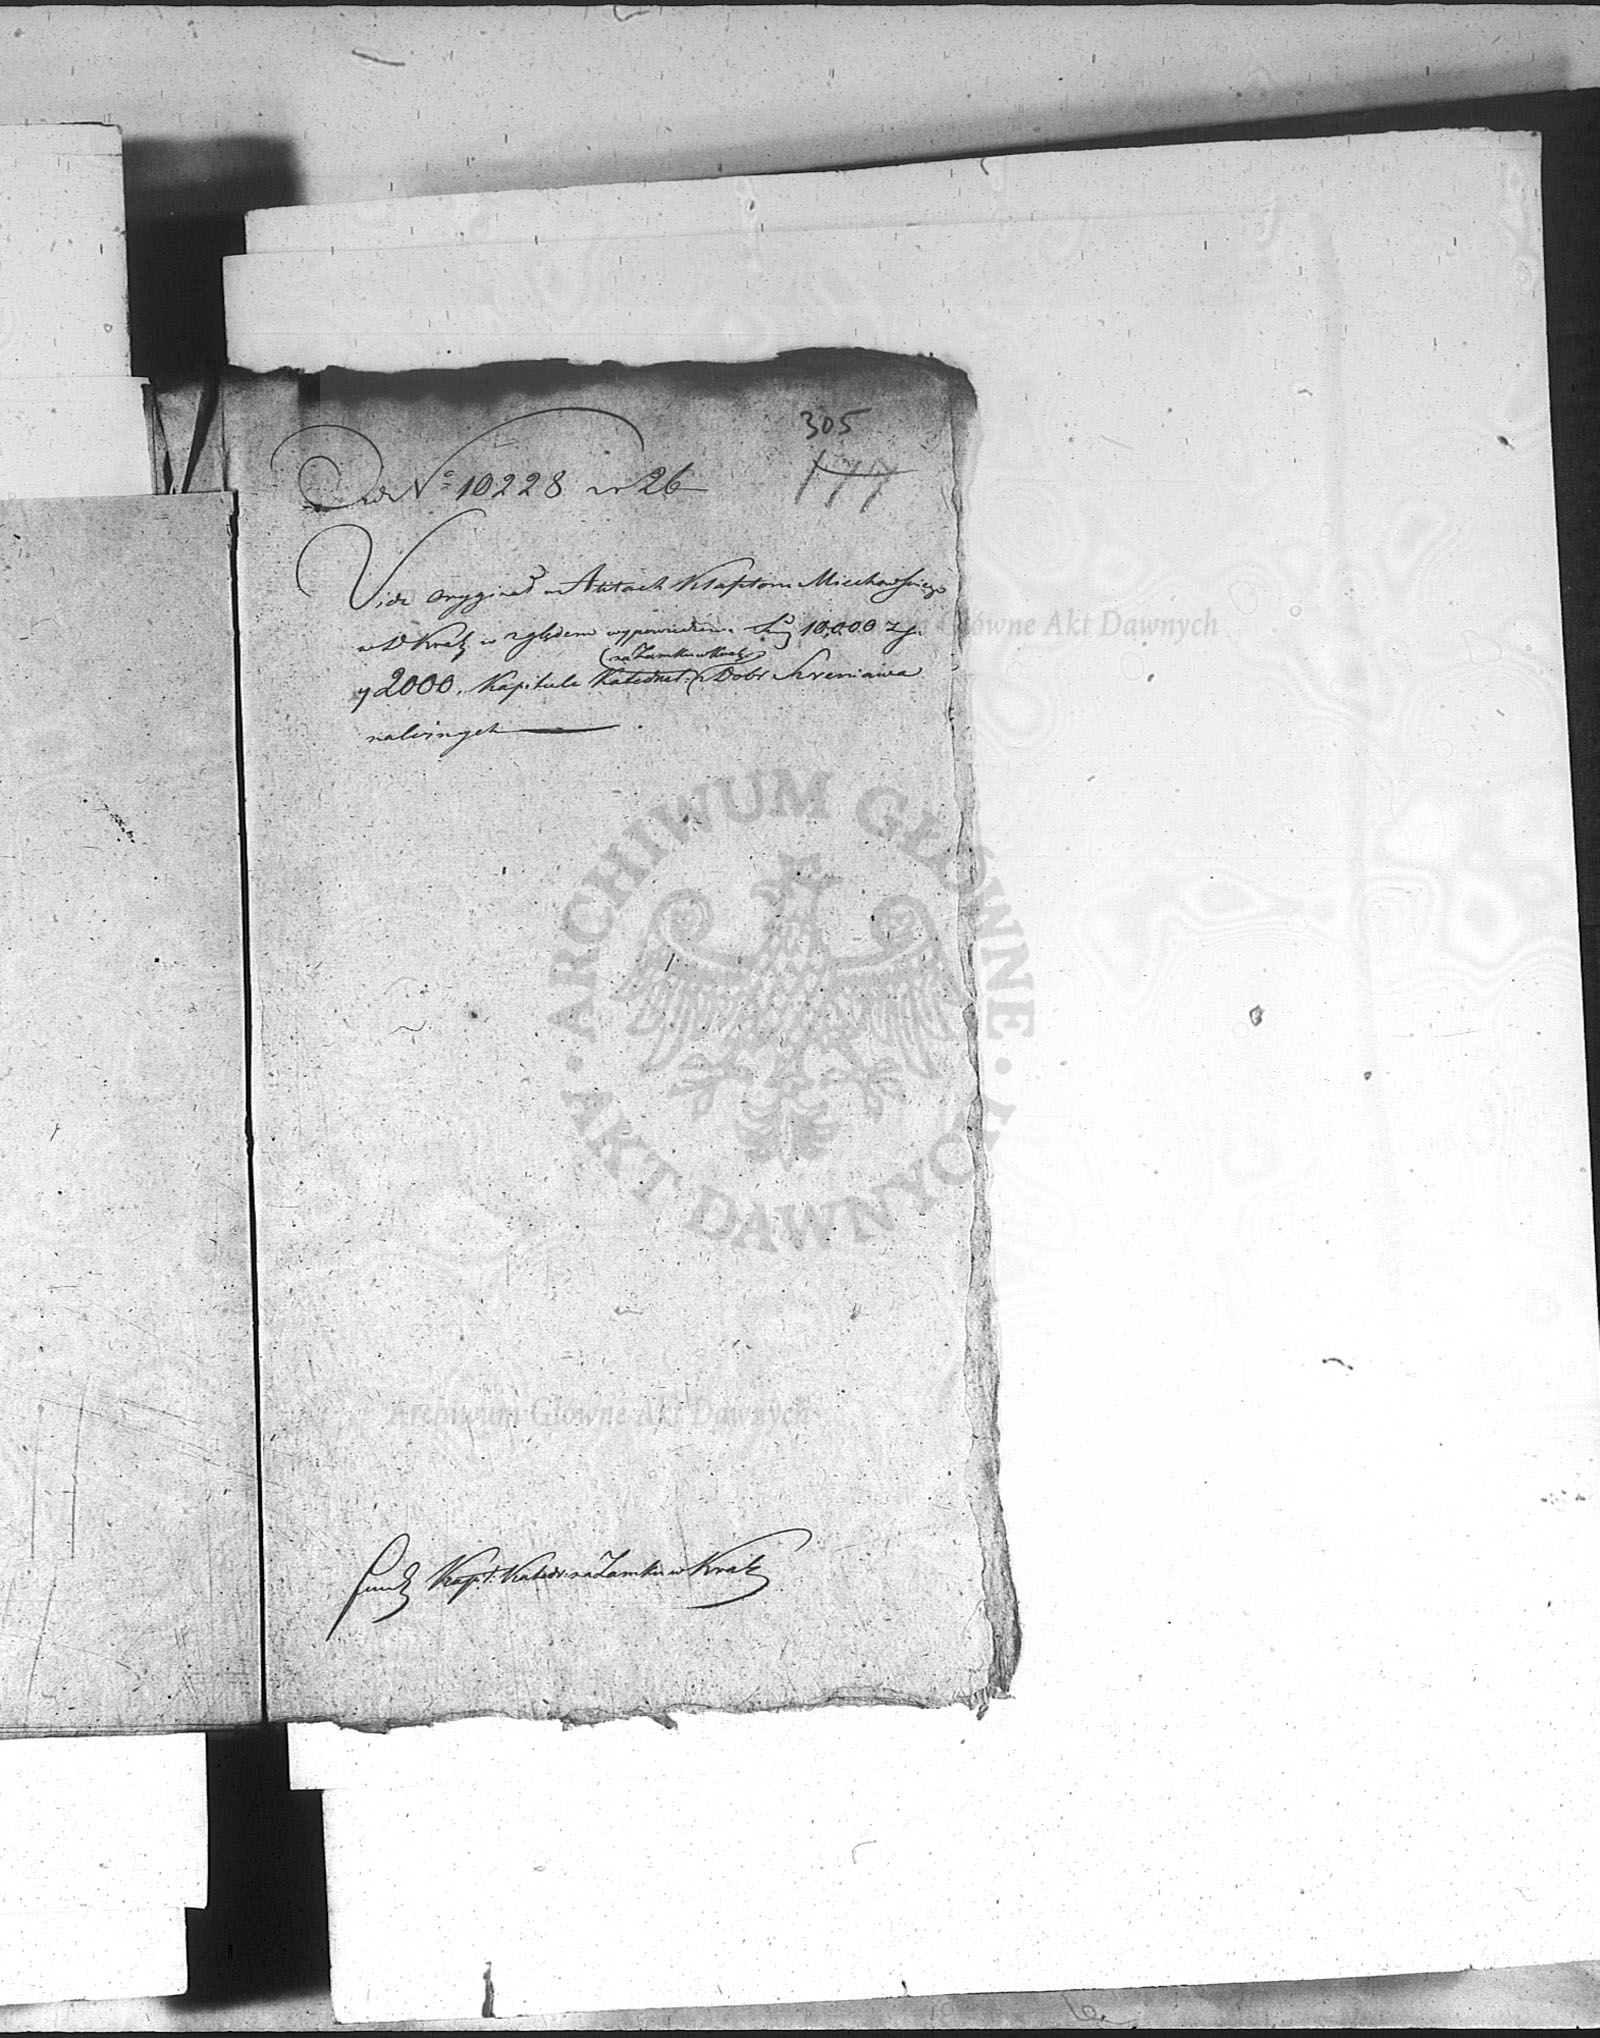 305
177
Ad No 10228 ex 26
Vide oryginał w Aktach Klasztoru Miechowskiego
w D Krak względem wypowiedzen. Sum 10,000 zł.
na Zamku w Krak.
y 2000. Kapitule Katedral. z Dobr Szreniawa
należnych
fund Kapit: Katedr: na Zamku w Krak
Archiwum Główne Akt Dawnych
ARCHIWUM GŁÓWNE · AKT DAWNYCH ·
Archiwum Główne Akt Dawnych